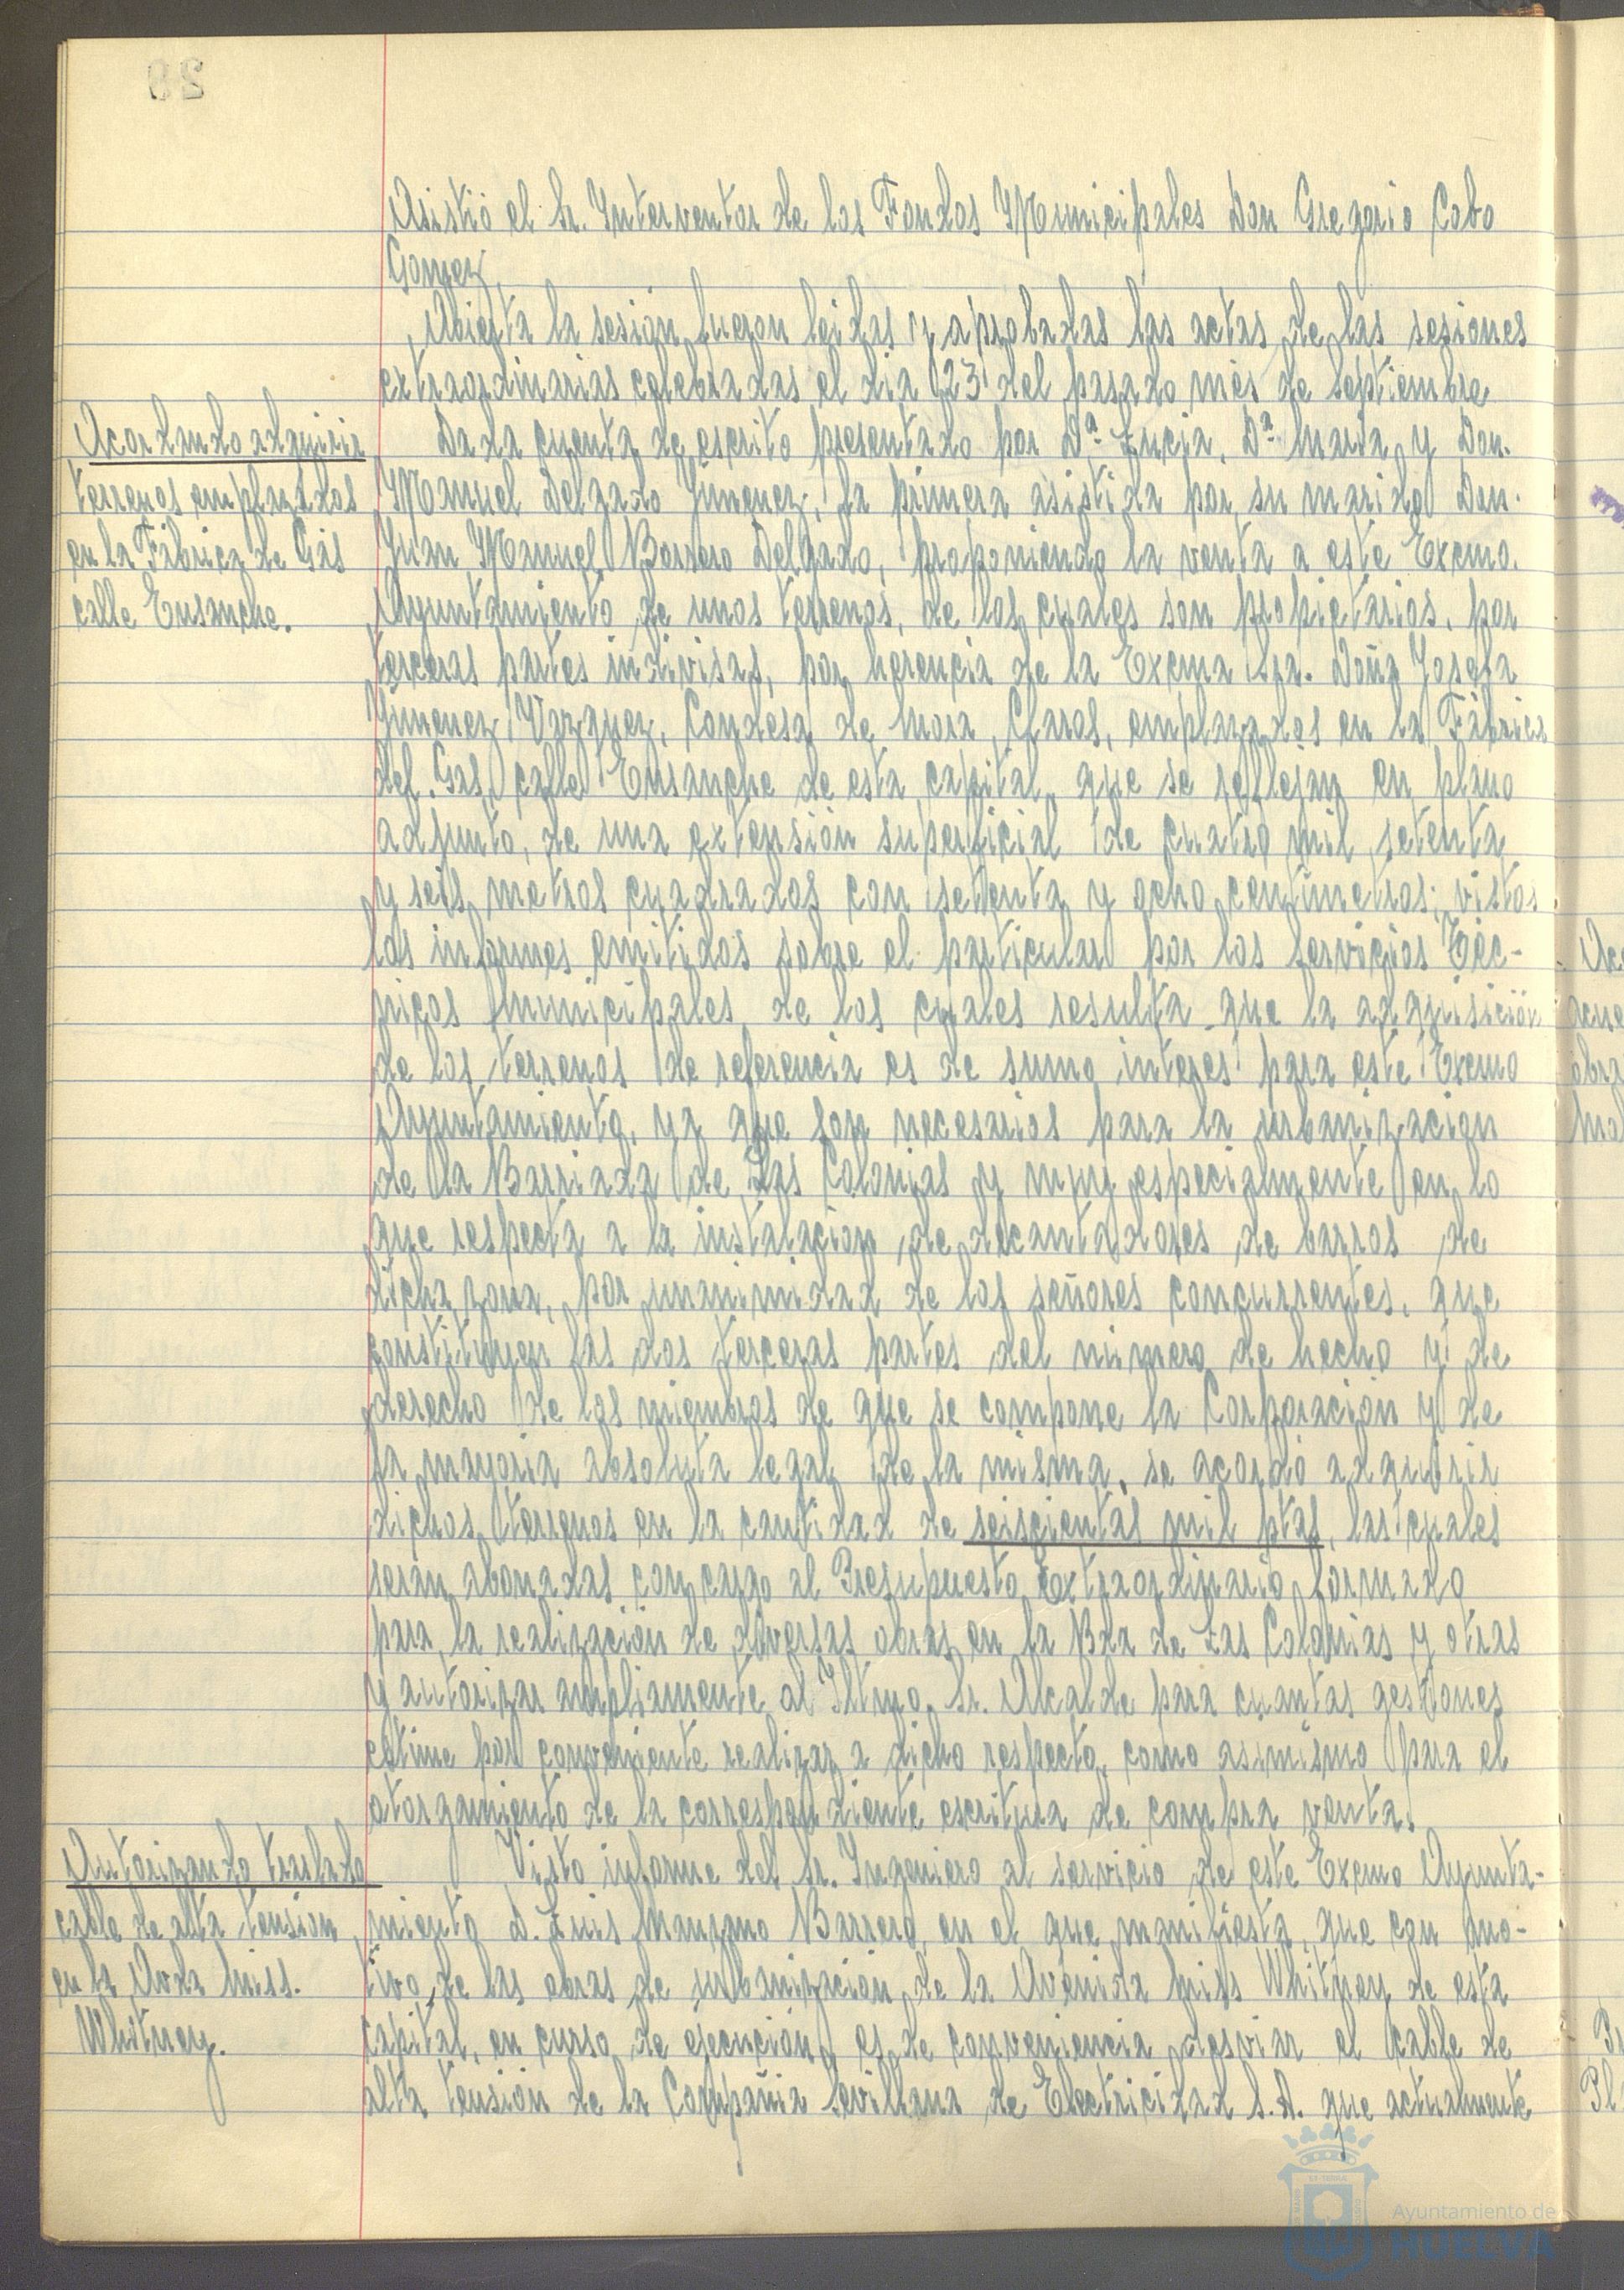 Asistió el Sr. Interventor de los Fondos Municipales Don Gregorio Cobo
Gomez.
Abierta la sesión fueron leidas y aprobadas las actas de las sesiones
extraordinarias celebradas el dia 23 del pasado mes de Septiembre
Acordando adquirir
terrenos emplazados
en la Fábrica de Gas
calle Ensanche.
Dada cuenta de escrito presentado por Dª Lucia, Dª Maria y Don.
Manuel Delgado Jimenez, la primera asistida por su marido Don.
Juan Manuel Borrero Delgado, proponiendo la venta a este Excmo.
Ayuntamiento de unos terrenos, de los cuales son propietarios, por
terceras partes indivisas, por herencia de la Excma Sra. Doña Josefa
Jimenez Vazquez, Condesa de Mora Claros, emplazados en la Fábrica
del Gas, calle Ensanche de esta capital, que se reflejan en plano
adjunto, de una extensión superficial de cuatro mil setenta
y seis metros cuadrados con setenta y ocho centimetros; vistos
los informes emitidos sobre el particular por los Servicios Téc-
nicos Municipales, de los cuales resulta que la adquisición
de los terrenos de referencia es de sumo interes para este Excmo
Ayuntamiento, ya que son necesarios para la urbanizacion
de la Barriada de Las Colonias y muy especialmente en lo
que respecta a la instalacion de decantadores de barros de
dicha zona, por unanimidad de los señores concurrentes, que
constituyen las dos terceras partes del número de hecho y de
derecho de los miembros de que se compone la Corporación y de
la mayoria absoluta legal de la misma, se acordó adquirir
dichos terrenos en la cantidad de seiscientas mil ptas, las cuales
serán abonadas con cargo al Presupuesto Extraordinario formado
para la realización de diversas obras en la Bda de Las Colonias y otras
y autorizar ampliamente al Iltmo. Sr. Alcalde para cuantas gestiones
estime por conveniente realizar a dicho respecto, como asimismo para el
otorgamiento de la correspondiente escritura de compra venta.
Autorizando traslado
cable de alta tension
en la Avda Miss.
Whitney.
Visto informe del Sr. Ingeniero al servicio de este Excmo Ayunta-
miento D. Luis Manzano Barrero, en el que manifiesta, que con mo-
tivo de las obras de urbanizacion de la Avenida Miss Whitney de esta
capital, en curso de ejecución, es de conveniencia desviar el cable de
alta tension de la Compañia Sevillana de Electricidad S.A. que actualmente
Ayuntamiento de
HUELVA